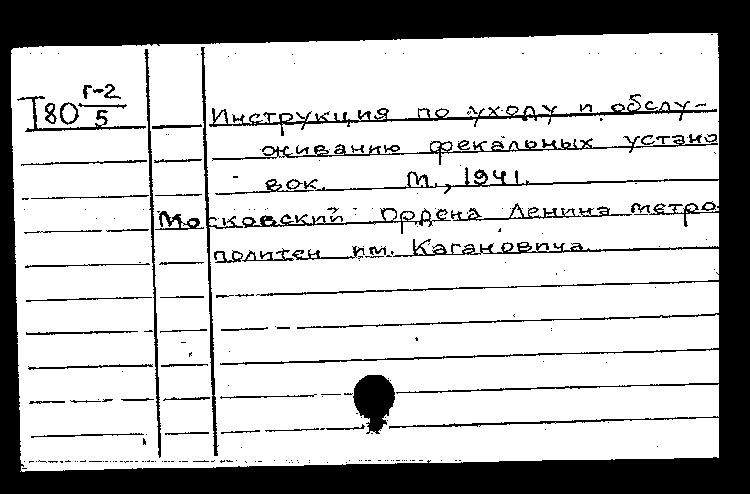 Т80 г-2/5
Инструкция по уходу и обслу-
живанию фекальных устано
вок. М., 1941.
Московский Ордена Ленина метро
политен им. Кагановича